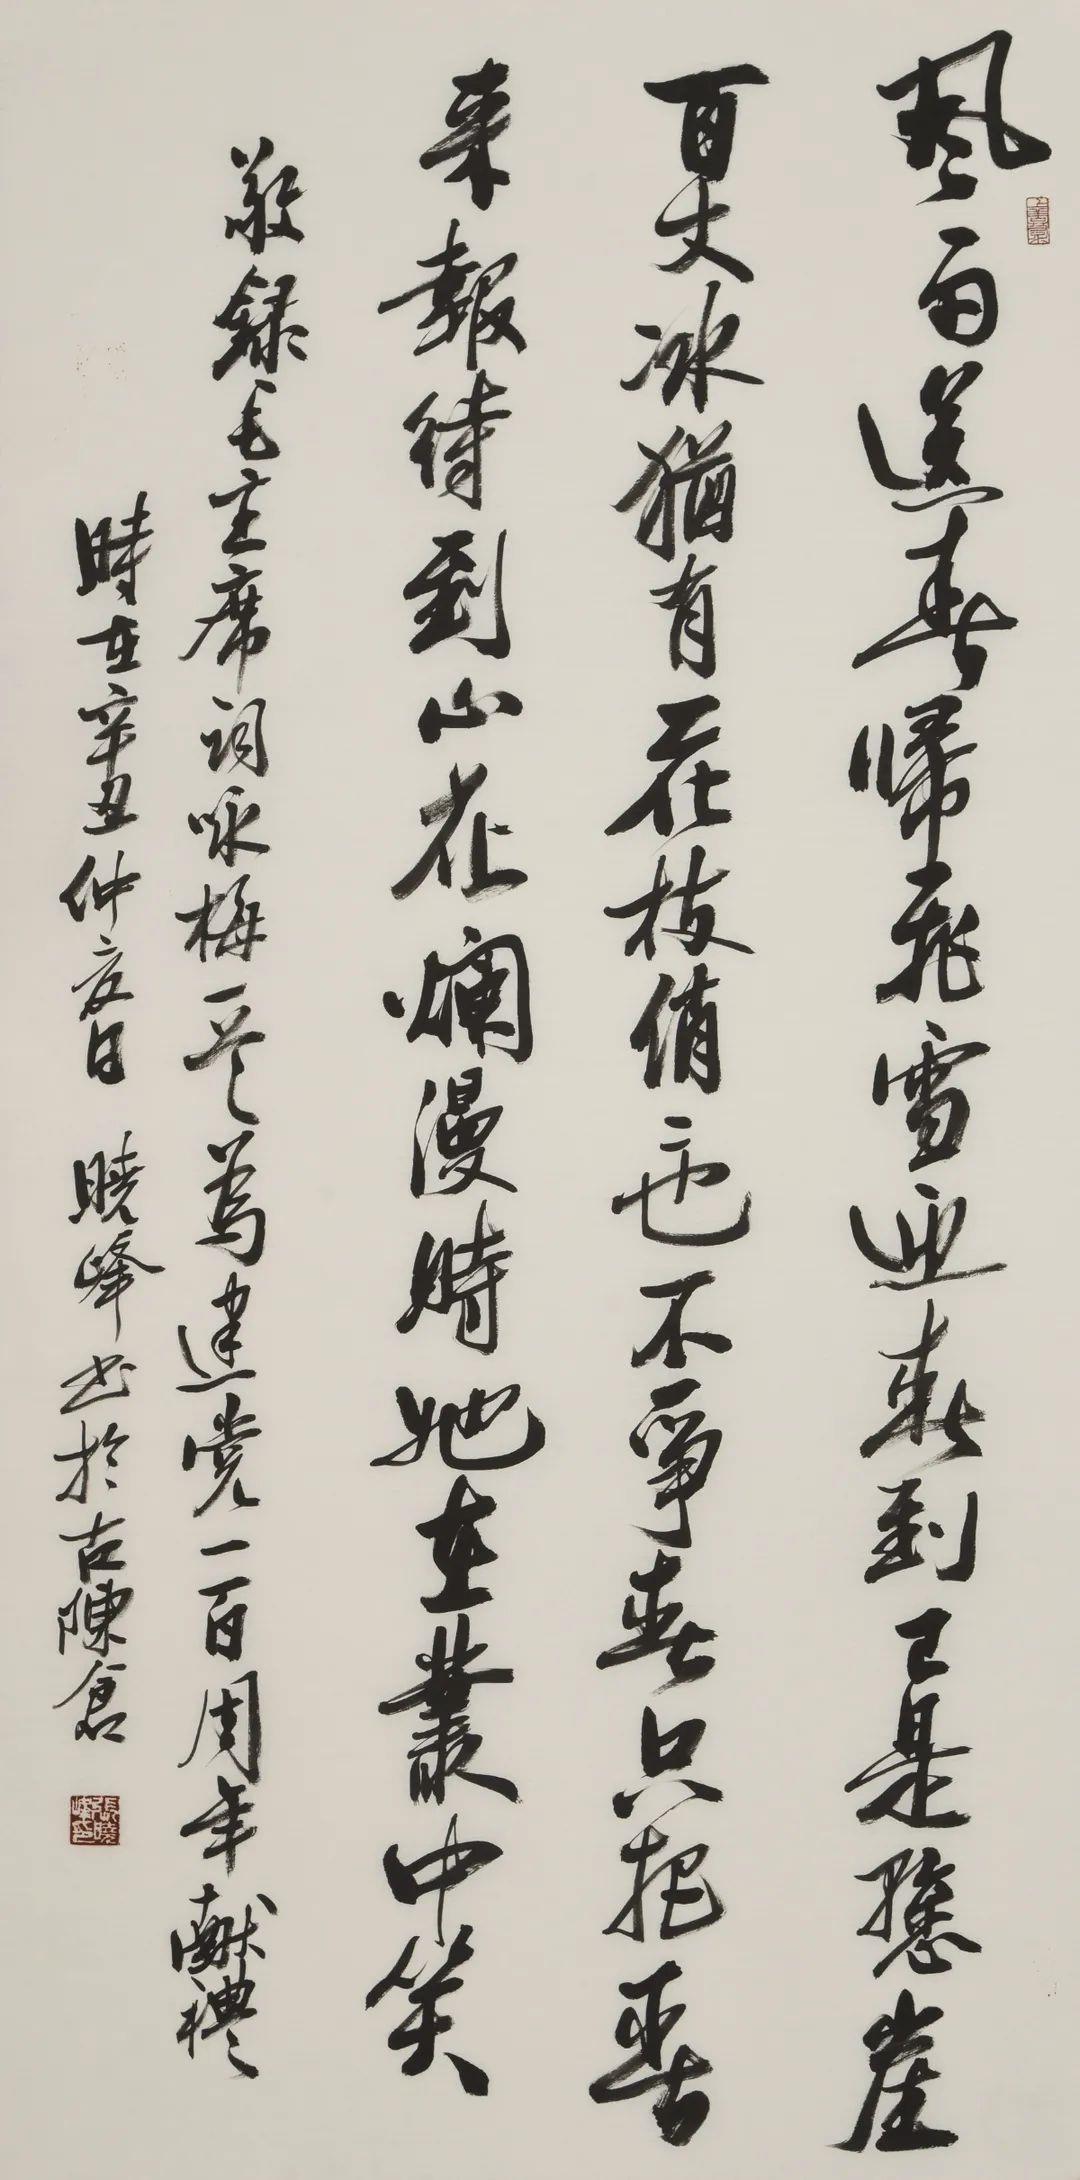 風雨送春歸飛雪迎春到已是懸崖
百丈冰猶有花枝俏〻也不爭春只把春
来報待到山花爛漫時她在叢中笑
敬録毛主席詞咏梅一首為建党一百周年献禮
時在辛丑仲夏日 曉峰书於古陳倉
張曉峰印